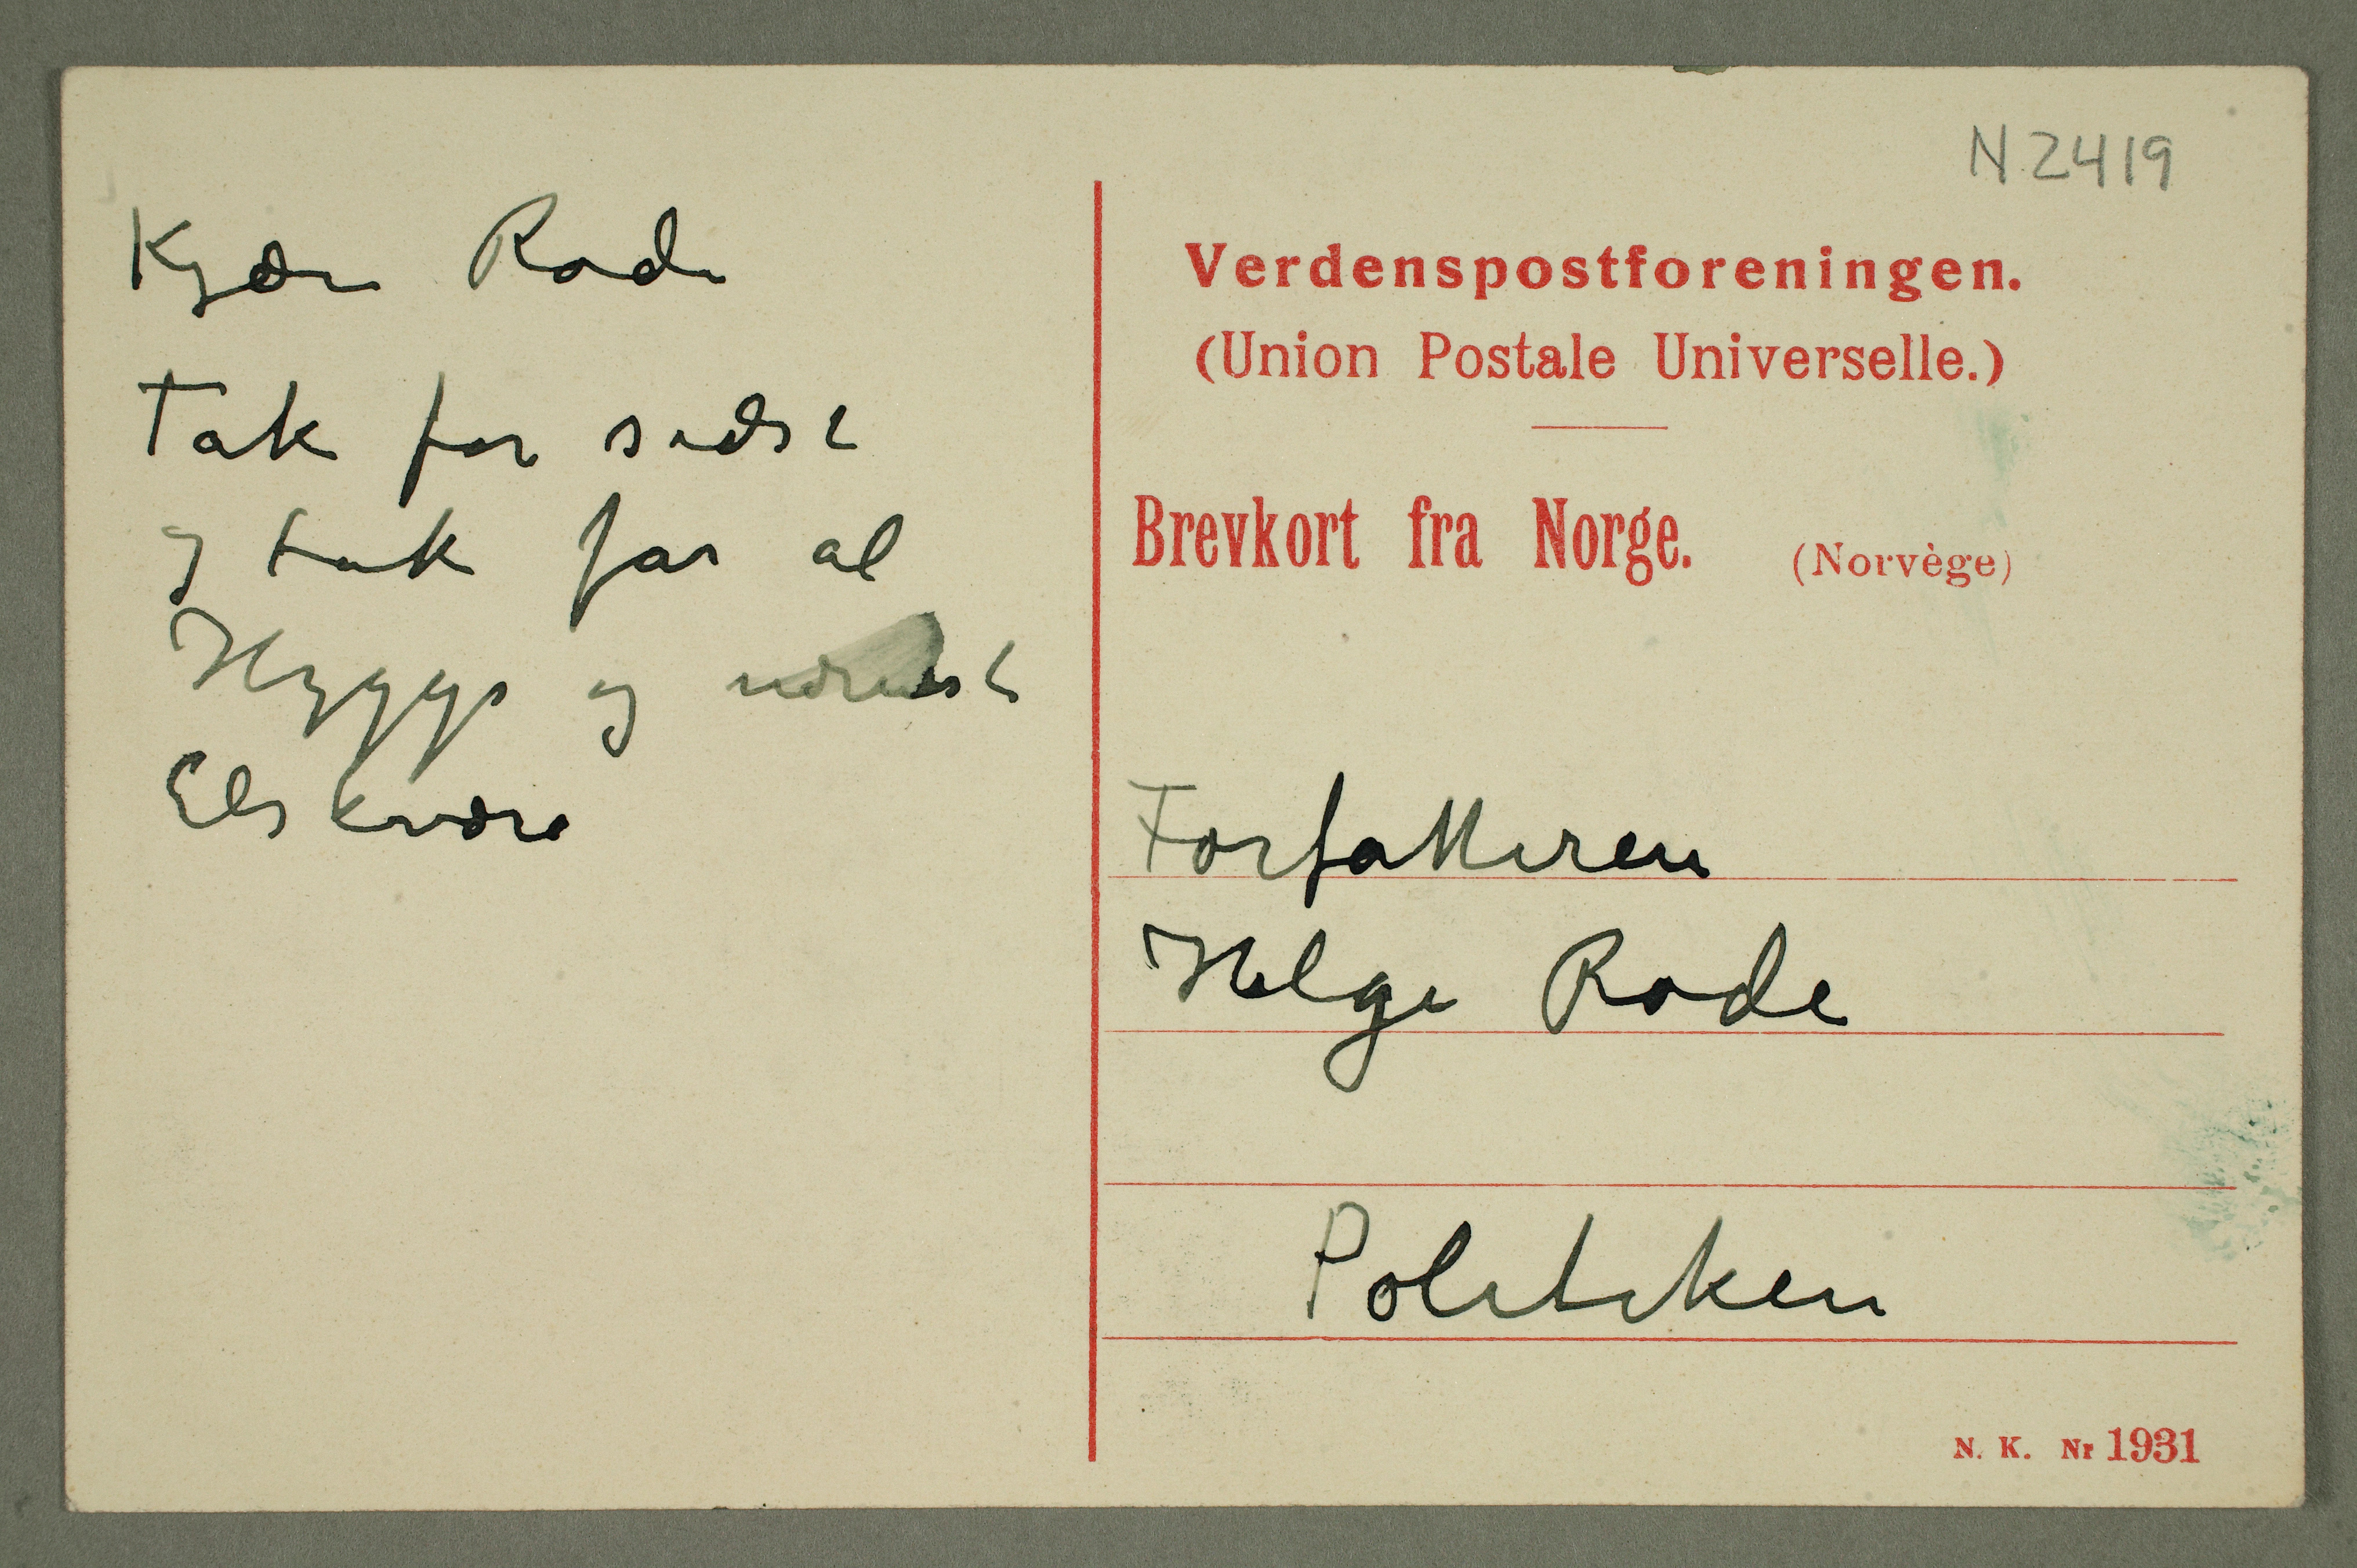 Kjære Rode
Tak for sidst
og tak for al
Hygge og
Elskvære
N 2419
Verdenspostforeningen.
(Union Postale Universelle.)
Brevkort fra Norge. (Norvège)
Forfatteren
Helge Rode
Politiken
N. K. Nr 1931